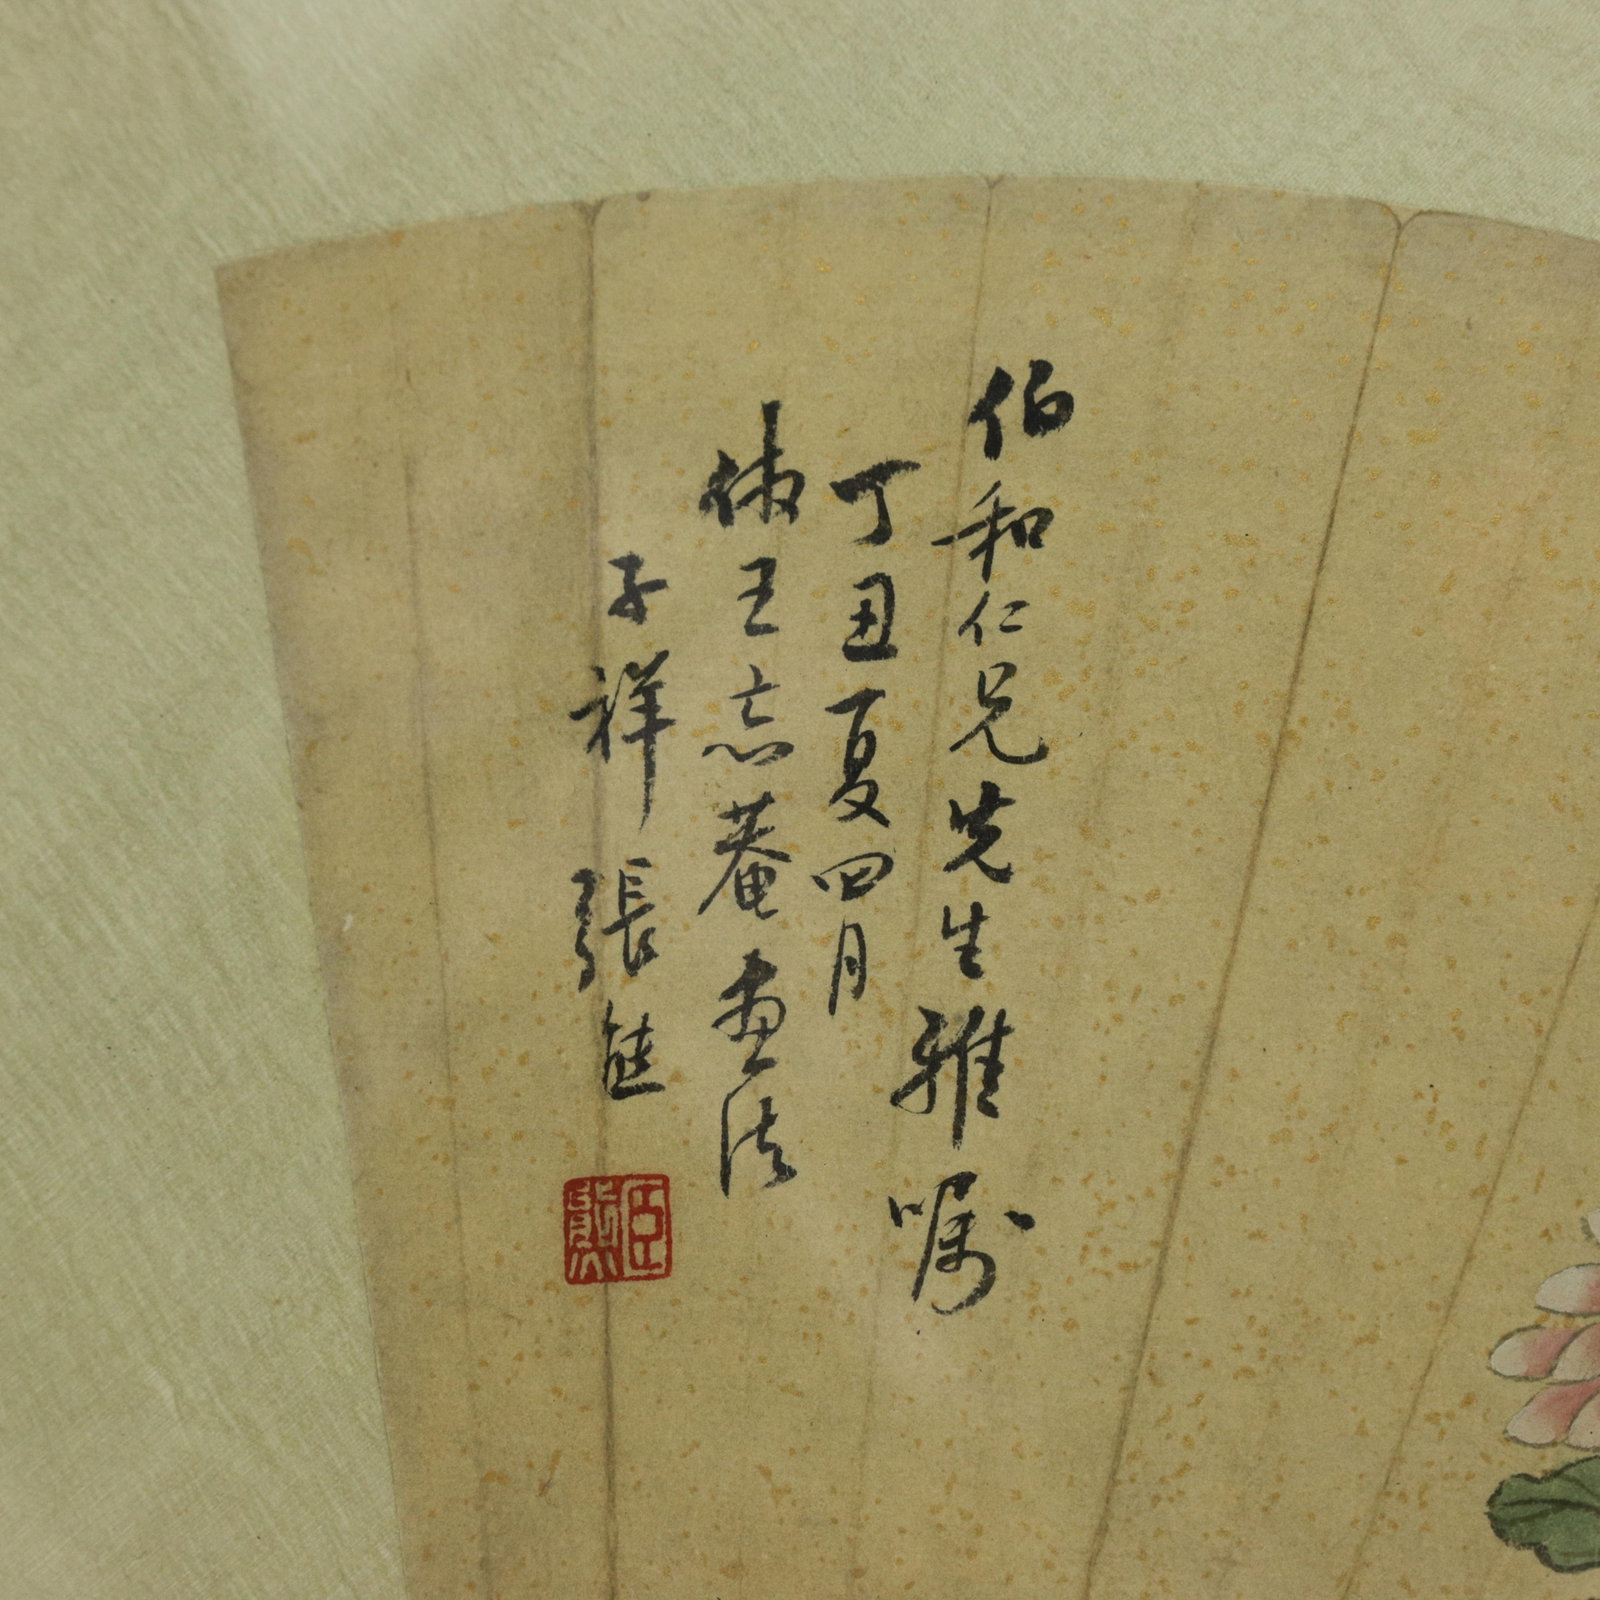 伯和仁兄先生雅嘱
丁丑夏四月
仿王忘菴画法
子祥張熊
臣熊